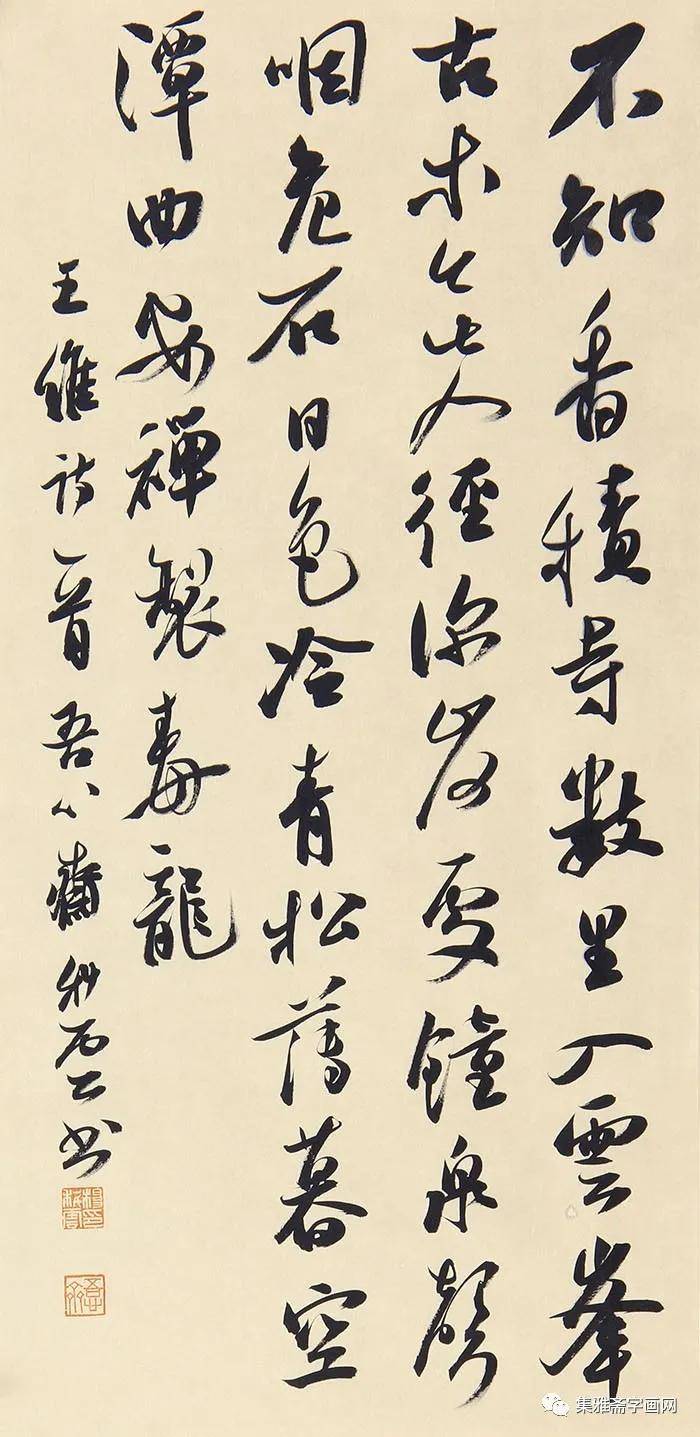 不知香積寺數里入雲峯
古木無人徑深山何處鐘泉聲
咽危石日色冷青松薄暮空
潭曲安禪製毒龍
王維詩一首 吾心齋 秋雲书
集雅斋字画网